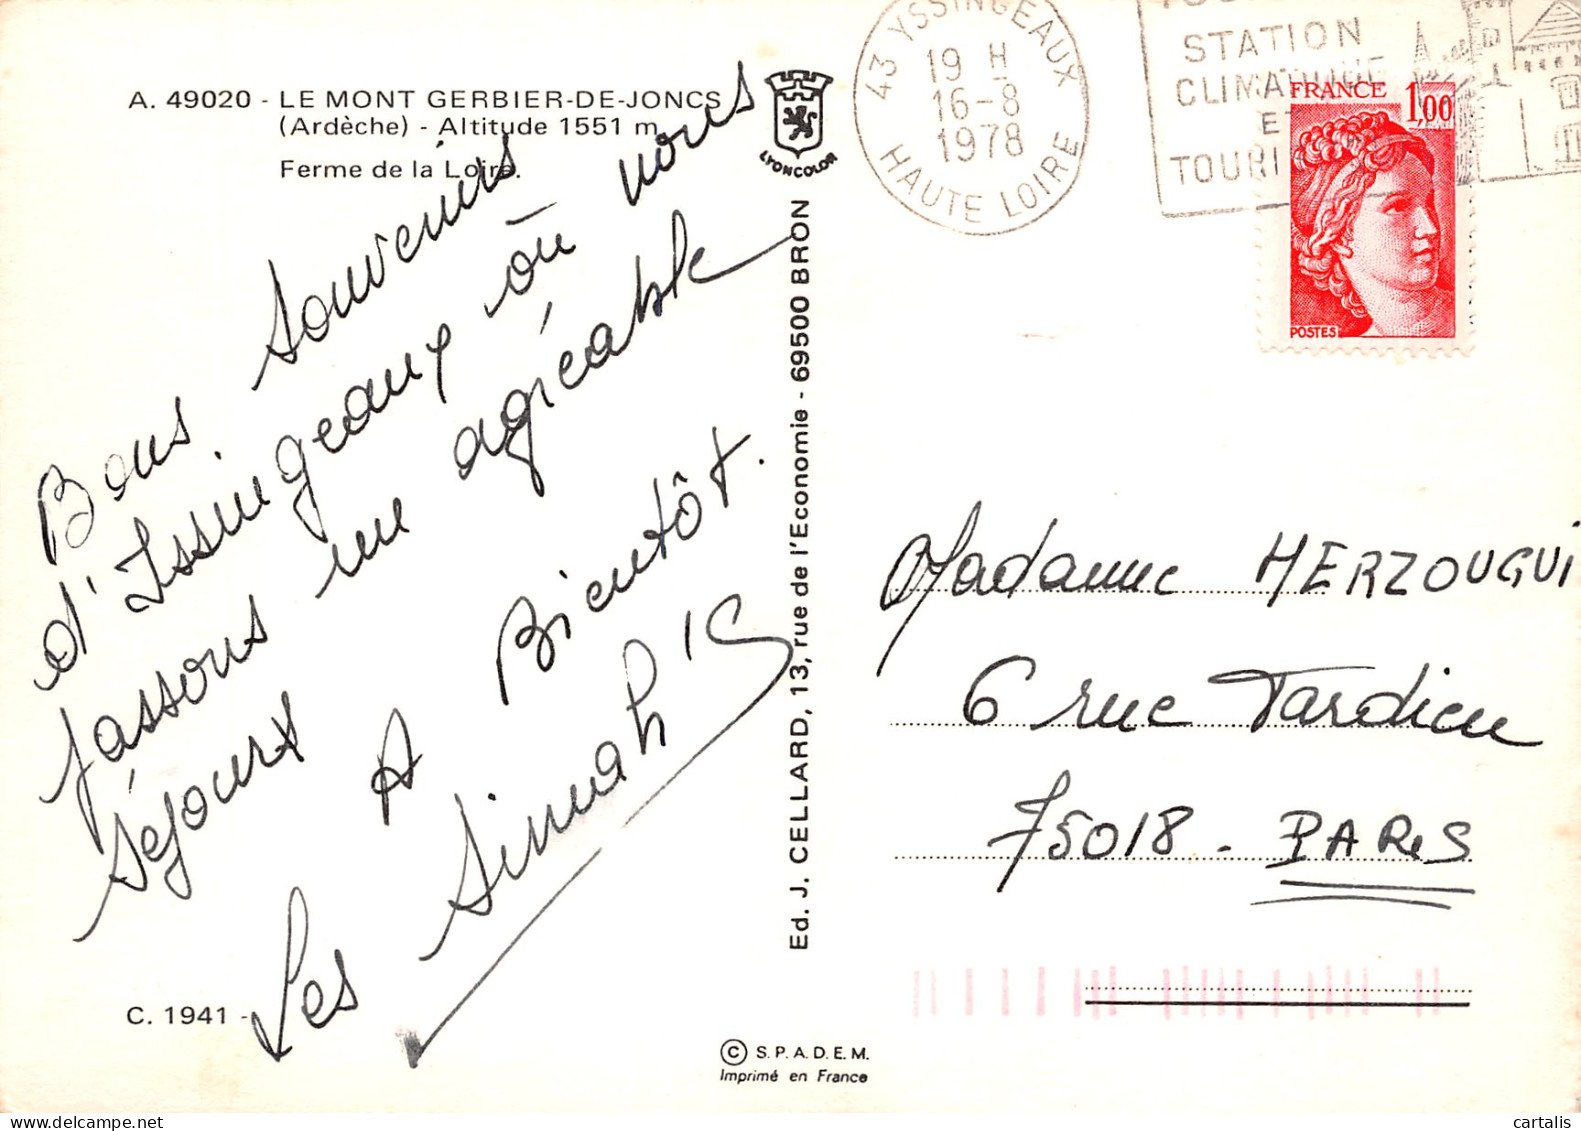 A. 49020 - LE MONT GERBIER-DE-JONCS
(Ardèche) - Altitude 1551 m.
Ferme de la Loire.
LYONCOLOR
Bons souvenirs
d'Issingeaux où nous
passons un agréable
séjour
A Bientôt.
Les
C. 1941 -
Ed. J. CELLARD, 13, rue de l'Economie - 69500 BRON
© S.P.A.D.E.M.
Imprimé en France
43 YSSINGEAUX
19 H
16-8
1978
HAUTE LOIRE
STATION
CLIMATIQUE
ET
TOURI
FRANCE 1,00
POSTES
Madame HERZOUGUI
6 rue Tardieu
75018 - PARIS
cartalis